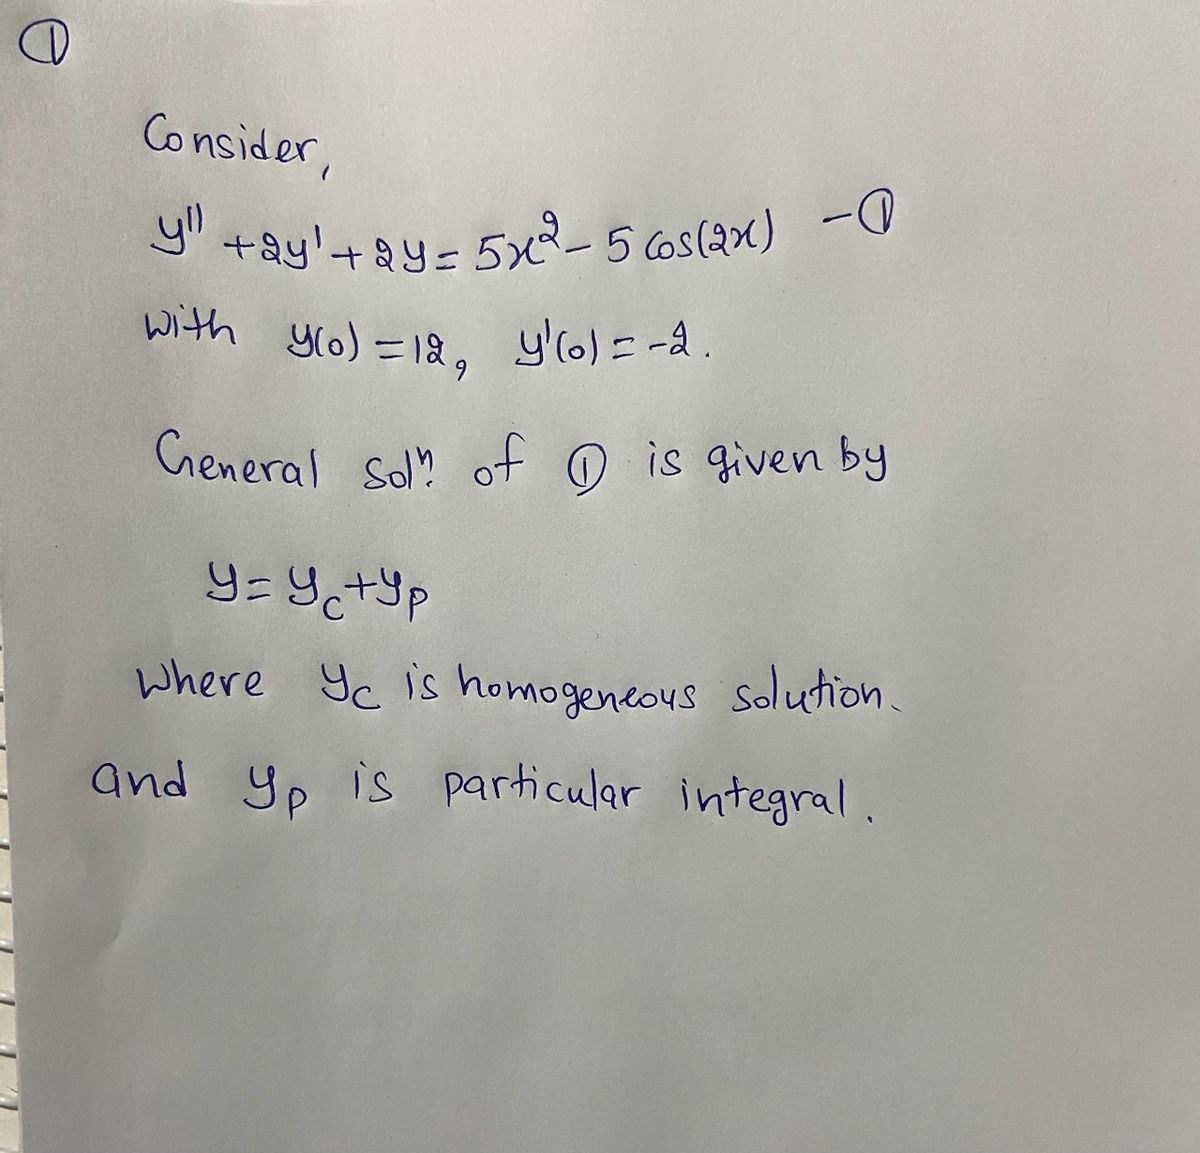 ①
Consider,
y'' + 2y' + 2y = 5x² - 5 cos(2x) - ①
with y(0) = 12, y'(0) = -2.
General solⁿ. of ① is given by
y = y_c + y_p
where y_c is homogeneous solution.
and y_p is particular integral.